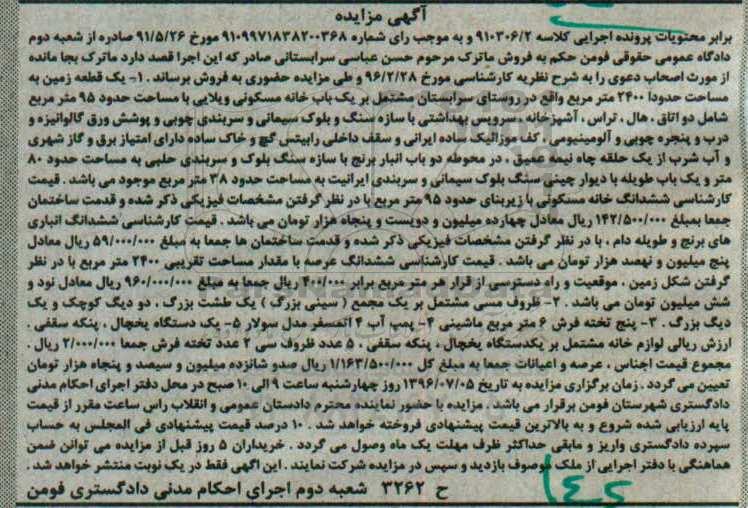 آگهی مزایده
برابر محتویات پرونده اجرایی کلاسه ۹۱۰۳۰۶/۲ و به موجب رای شماره ۹۱۰۹۹۷۱۸۳۸۲۰۰۳۶۸ مورخ ۹۱/۵/۲۶ صادره از شعبه دوم
دادگاه عمومی حقوقی فومن حکم به فروش ماترک مرحوم حسن عباسی سرابستانی صادر که این اجرا قصد دارد ماترک بجا مانده
از مورث اصحاب دعوی را به شرح نظریه کارشناسی مورخ ۹۶/۲/۲۸ و طی مزایده حضوری به فروش برساند . ۱- یک قطعه زمین به
مساحت حدودا ۲۴۰۰ متر مربع واقع در روستای سرابستان مشتمل بر یک باب خانه مسکونی ویلایی با مساحت حدود ۹۵ متر مربع
شامل دو اتاق ، هال ، تراس ، آشپزخانه ، سرویس بهداشتی با سازه سنگ و بلوک سیمانی و سربندی چوبی و پوشش ورق گالوانیزه و
درب و پنجره چوبی و آلومینیومی ، کف موزائیک ساده ایرانی و سقف داخلی رابیتس گچ و خاک ساده دارای امتیاز برق و گاز شهری
و آب شرب از یک حلقه چاه نیمه عمیق ، در محوطه دو باب انبار برنج با سازه سنگ بلوک و سربندی حلبی به مساحت حدود ۸۰
متر و یک باب طویله با دیوار چینی سنگ بلوک سیمانی و سربندی ایرانیت به مساحت حدود ۳۸ متر مربع موجود می باشد . قیمت
کارشناسی ششدانگ خانه مسکونی با زیربنای حدود ۹۵ متر مربع با در نظر گرفتن مشخصات فیزیکی ذکر شده و قدمت ساختمان
جمعا بمبلغ ۱۴۲/۵۰۰/۰۰۰ ریال معادل چهارده میلیون و دویست و پنجاه هزار تومان می باشد . قیمت کارشناسی ششدانگ انباری
های برنج و طویله دام ، با در نظر گرفتن مشخصات فیزیکی ذکر شده و قدمت ساختمان ها جمعا به مبلغ ۵۹/۰۰۰/۰۰۰ ریال معادل
پنج میلیون و نهصد هزار تومان می باشد . قیمت کارشناسی ششدانگ عرصه با مقدار مساحت تقریبی ۲۴۰۰ متر مربع با در نظر
گرفتن شکل زمین ، موقعیت و راه دسترسی از قرار هر متر مربع برابر ۴۰۰/۰۰۰ ریال جمعا به مبلغ ۹۶۰/۰۰۰/۰۰۰ ریال معادل نود و
شش میلیون تومان می باشد . ۲- ظروف مسی مشتمل بر یک مجمع ( سینی بزرگ ) یک طشت بزرگ ، دو دیگ کوچک و یک
دیگ بزرگ . ۳- پنج تخته فرش ۶ متر مربع ماشینی ۴- پمپ آب ۴ اتمسفر مدل سولار ۵- یک دستگاه یخچال ، پنکه سقفی .
ارزش ریالی لوازم خانه مشتمل بر یکدستگاه یخچال ، پنکه سقفی ، ۵ عدد ظروف سی ۲ عدد تخته فرش جمعا ۲/۰۰۰/۰۰۰ ریال .
مجموع قیمت اجناس ، عرصه و اعیانات جمعا به مبلغ کل ۱/۱۶۳/۵۰۰/۰۰۰ ریال صدو شانزده میلیون و سیصد و پنجاه هزار تومان
تعیین می گردد . زمان برگزاری مزایده به تاریخ ۱۳۹۶/۰۷/۰۵ روز چهارشنبه ساعت ۹ الی ۱۰ صبح در محل دفتر اجرای احکام مدنی
دادگستری شهرستان فومن برقرار می باشد . مزایده با حضور نماینده محترم دادستان عمومی و انقلاب راس ساعت مقرر از قیمت
پایه ارزیابی شده شروع و به بالاترین قیمت پیشنهادی فروخته خواهد شد . ۱۰ درصد قیمت پیشنهادی فی المجلس به حساب
سپرده دادگستری واریز و مابقی حداکثر ظرف مهلت یک ماه وصول می گردد . خریداران ۵ روز قبل از مزایده می توانن ضمن
هماهنگی با دفتر اجرایی از ملک موصوف بازدید و سپس در مزایده شرکت نمایند . این اگهی فقط در یک نوبت منتشر خواهد شد .
ح ۳۲۶۲ شعبه دوم اجرای احکام مدنی دادگستری فومن